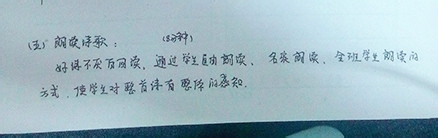 (五) 朗读诗歌： (3分钟)
好课不厌百回读，通过学生自由朗读、名家朗读、全班学生朗读的
方式，使学生对整首诗有整体的感知.